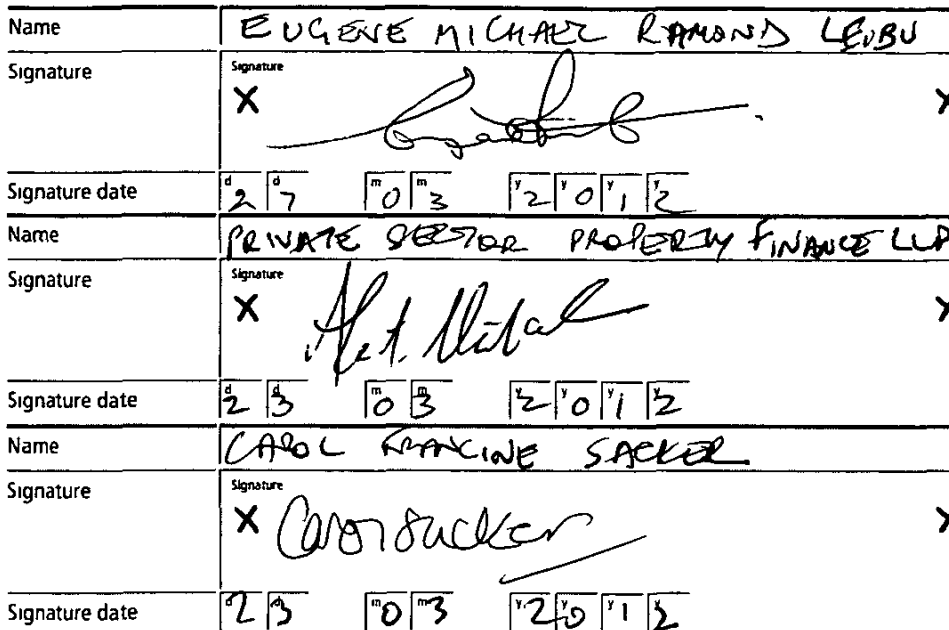 Name EUGENE MICHAEL RAMOND LEVBU
Signature Signature
X X
Signature date d2 d7 m0 m3 y2 y0 y1 y2
Name PRIVATE SECTOR PROPERTY FINANCE LLP
Signature Signature
X X
Signature date d2 d3 m0 m3 y2 y0 y1 y2
Name CAROL FRANCINE SACKER
Signature Signature
X Carol Sacker X
Signature date d2 d3 m0 m3 y2 y0 y1 y2